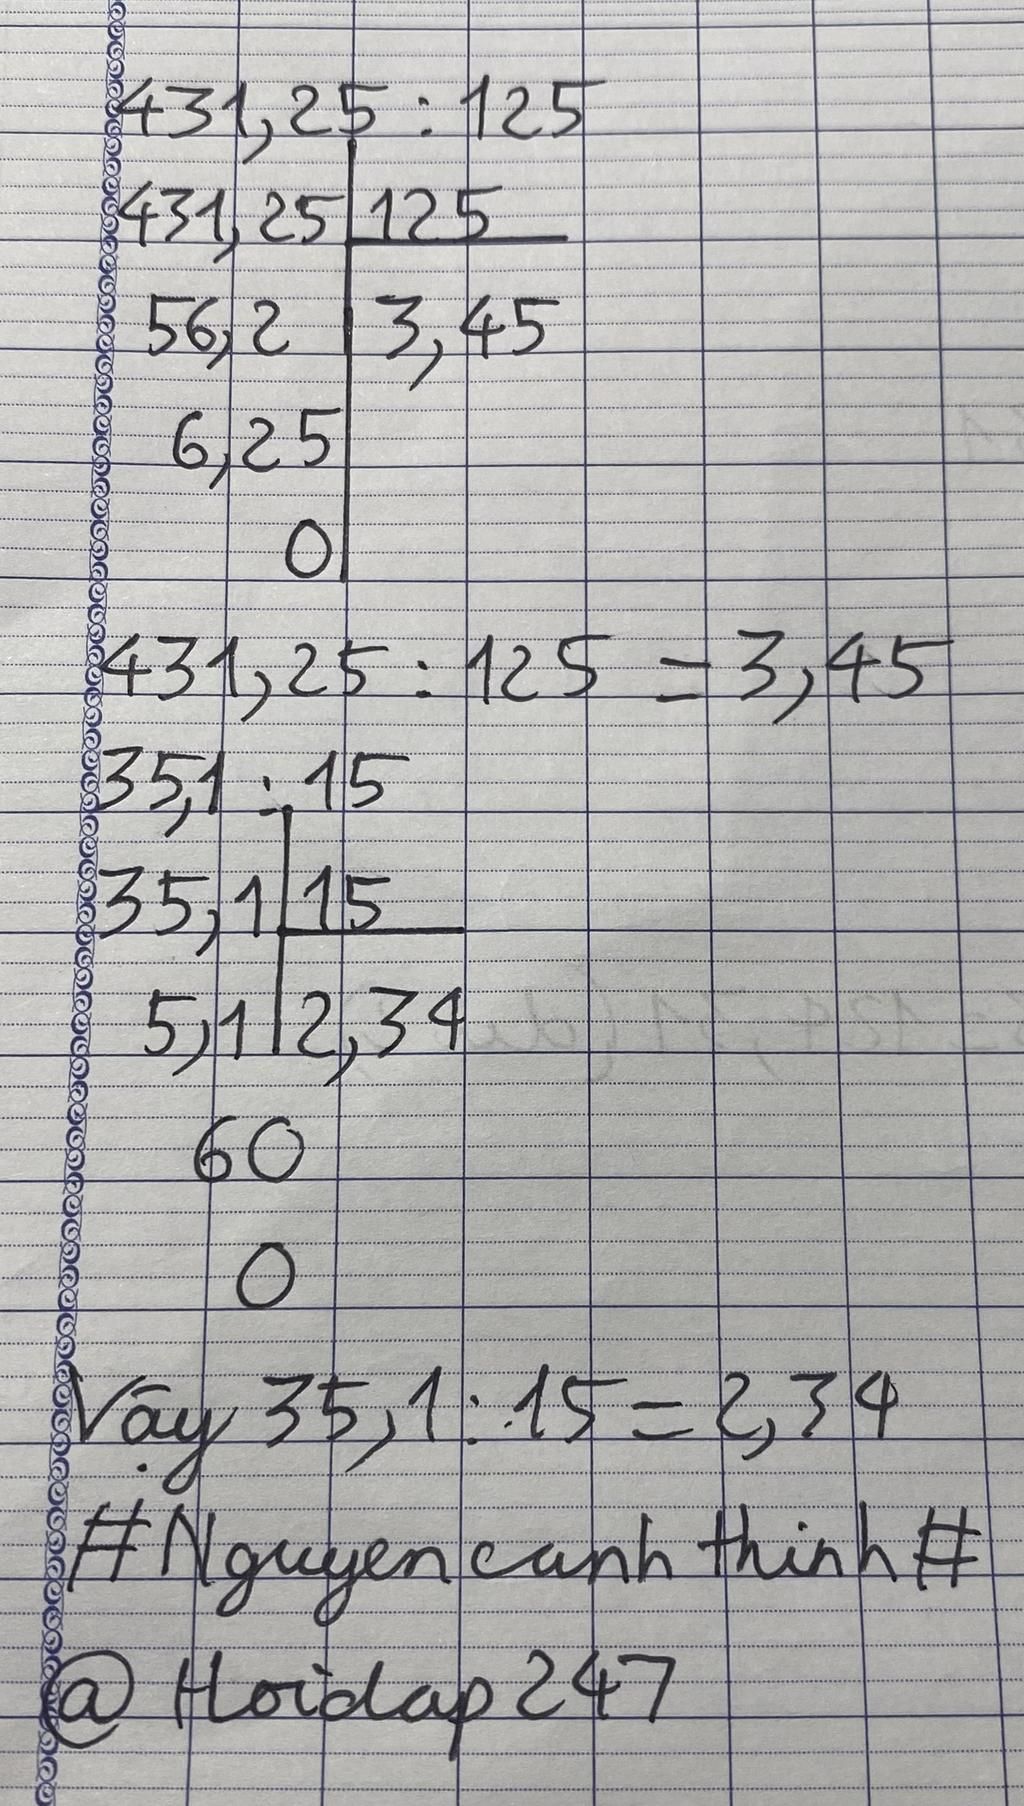 431,25 : 125
431,25 125
56,2 3,45
6,25
0
431,25 : 125 = 3,45
35,1 : 15
35,1 15
5,1 2,34
60
0
Vậy 35,1 : 15 = 2,34
#Nguyen canh thinh#
@ Hoidap247